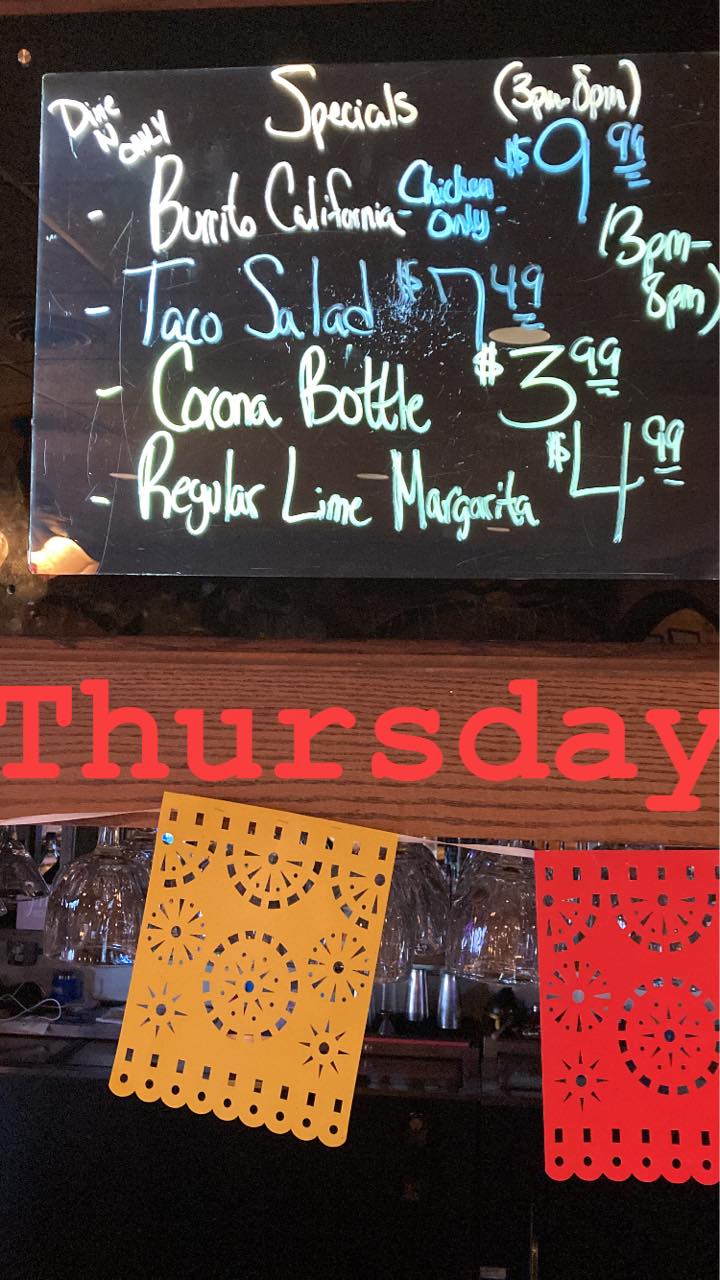 Dine N ONLY
Specials (3pm-8pm)
- Burrito California -Chicken ONLY- $9.99
(3pm-8pm)
- Taco Salad $7.49
- Corona Bottle $3.99
- Regular Lime Margarita $4.99
Thursday